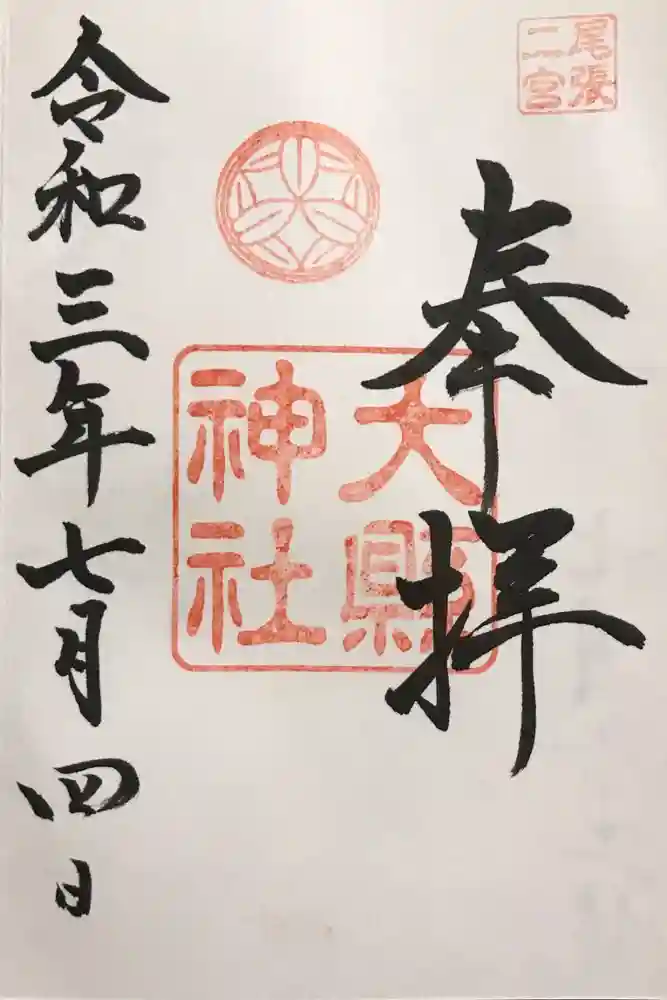 尾張
二宮
奉拝
大縣
神社
令和三年七月四日